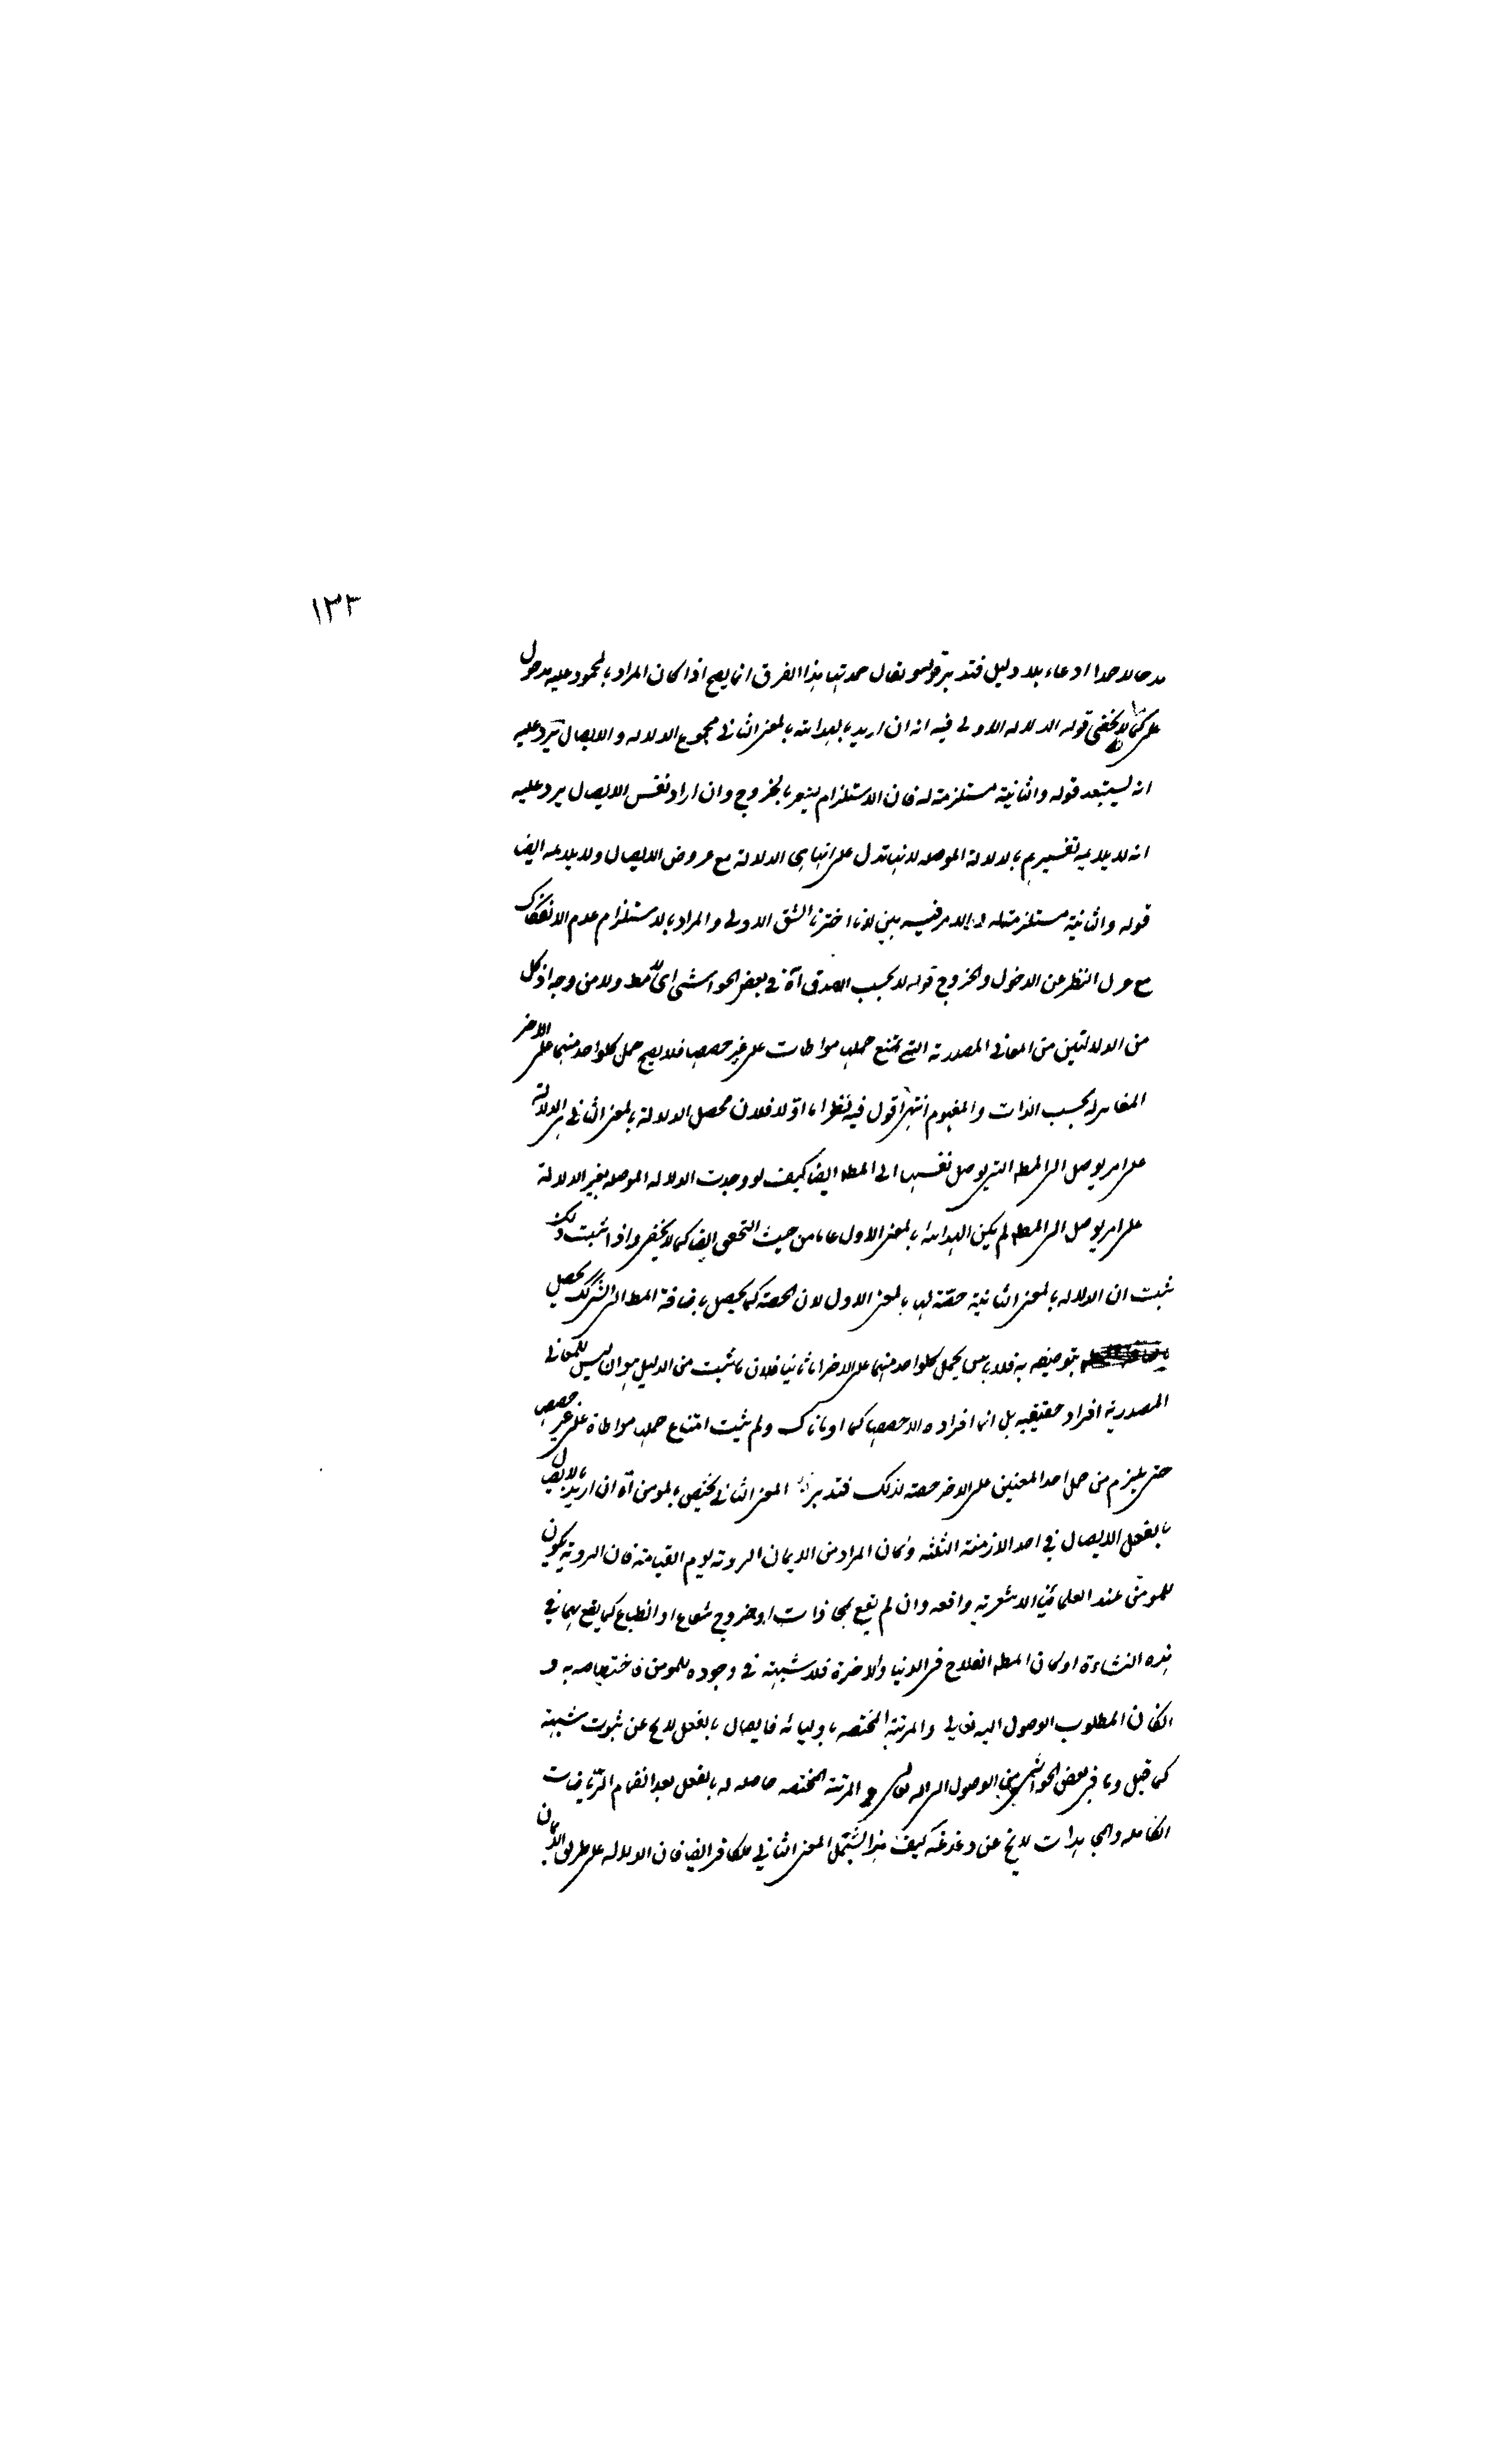 ١٢٣
مدحا لا حمدا ادعاء بلا دليل فتدبر قوله سو يقال حمدتها هذا الفرق انما يصح اذا كان المراد بالمحمود عليه مدخول
على كما لا يخفى قوله الدلالة الاولى فيه انه ان اريد بالهداية بالمعنى الثاني مجموع الدلالة والايصال يرد عليه
انه يستبعد قوله والثانية مستلزمة له فان الاستلزام يشعر بالخروج وان اراد نفس الايصال يرد عليه
انه لا يلايمه تفسيرهم بالدلالة الموصلة لانها تدل على انها هي الدلالة مع عروض الايصال ولا يلايمه ايضا
قوله والثانية مستلزمة له الامر فيه هين لانا اخترنا الشق الاولى والمراد بالاستلزام عدم الانفكاك
مع عزل النظر عن الدخول والخروج قوله لا بحسب الصدق اه في بعض الحواشي اى لا مط ولا من وجه اذ كل
من الدلالتين من المعاني المصدرية التي يمتنع حملها مواطات على غير حصصها فلا يصح حمل كلواحد منهما على الاخر
المغايرله بحسب الذات والمفهوم انتهى اقول فيه نظر اما اولا فلان محصل الدلالة بالمعنى الثاني هي الدلالة
على امر يوصل الى المط التي يوصل نفسها الى المط ايضا كيف لو وجدت الدلالة الموصلة بغير الدلالة
على امر يوصل الى المط لم يكن الهداية بالمعنى الاول عاما من حيث التحقق ايضا كما لا يخفى واذا ثبت ذلك
ثبت ان الدلالة بالمعنى الثانية حصة لها بالمعنى الاول لان الحصة كما يحصل باضافة المط الى الشئ كك يحصل
بتوصيفه به فلا باس بحمل كلواحد منهما على الاخر اما ثانيا فلان ما ثبت من الدليل هو ان ليس للمعاني
المصدرية افراد حقيقيه بل انما افراده الا حصصها كما اومأناك ولم يثبت امتناع حملها مواطاة على غير حصصها
حتى يلزم من حمل احد المعنيين على الاخر حصته لذلك فتدبر المعنى الثاني يختص بالمومن اه ان اريد بالايصال
بالفعل الايصال في احد الازمنة الثلثه وكان المراد من الايمان الروية يوم القيامة فان الروية يكون
للمومن عند العلماء الاشعرية واقعه وان لم يقع بمحاذات او خروج شعاع او انطباع كما يقع بهما في
هذه النشاءة او كان المط الفلاح في الدنيا والاخرة فلا شبهة في وجوده للمومن فاختصاصه به و
انكان المطلوب الوصول اليه تعالى والمرتبة المختصة باوليائه فايصال بالفعل لا يخ عن ثبوت شبهة
كما قيل وما في بعض الحواشي من الوصول الى الله تعالى و المرتبة المختصه حاصله له بالفعل بعد انضمام الرياضات
الكامله والمجاهدات لا يخ عن دغدغة كيف هذا يشتمل المعنى الثاني للكافر ايضا فان الدلالة على طريق الايمان